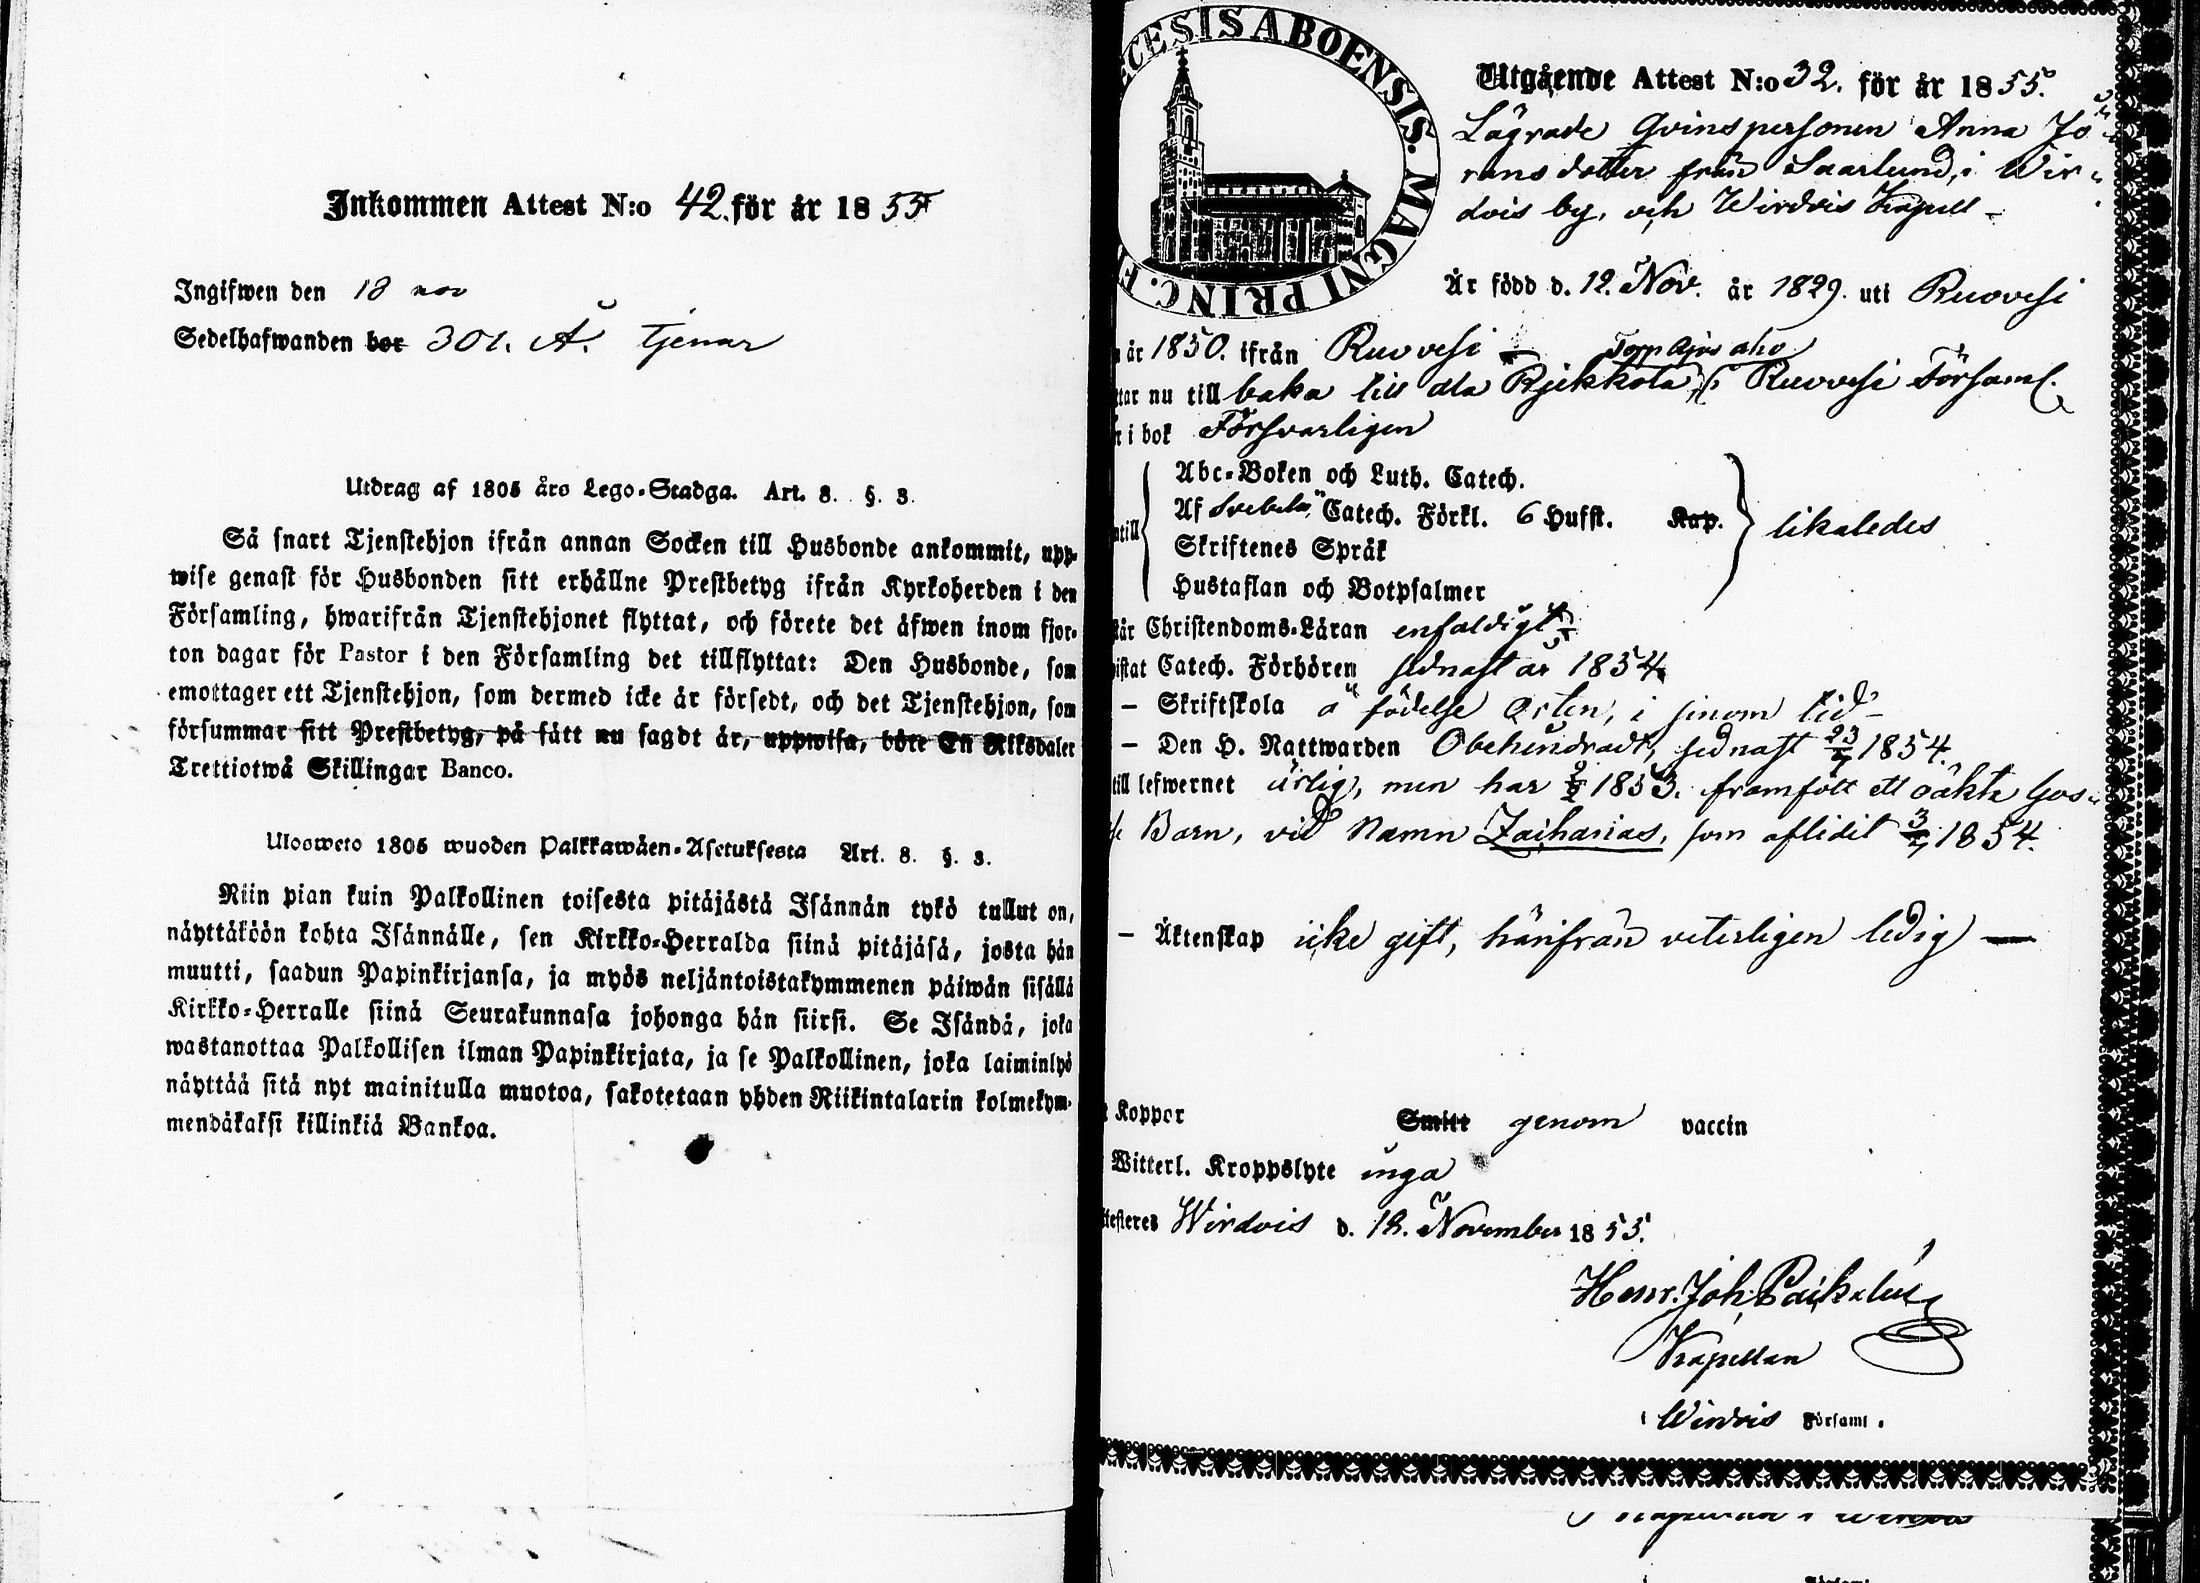 Inkommen Attest N:o 42. för år 1855
Ingifwen den 18 nov
Sedelhafwanden bor 301. A. tjenar
Utdrag af 1805 års Lego-Stadga. Art. 8. §. 3.
Så snart Tjenstehjon ifrån annan Socken till Husbonde ankommit, upp-
wise genast för Husbonden sitt erhållne Prestbetyg ifrån Kyrkoherden i den
Församling, hwarifrån Tjenstehjonet flyttat, och förete det äfwen inom fjor-
ton dagar för Pastor i den Församling det tillflyttat: Den Husbonde, som
emottager ett Tjenstehjon, som dermed icke är försedt, och det Tjenstehjon, som
försummar sitt Prestbetyg, på sätt nu sagdt är, uppwisa, böte En Riksdaler
Trettiotwå Skillingar Banco.
Ulosweto 1805 wuoden Palkkawäen-Asetuksesta Art. 8. §. 3.
Niin pian kuin Palkollinen toisesta pitäjästä Isännän tykö tullut on,
näyttäköön kohta Isännälle, sen Kirkko-Herralda siinä pitäjäsä, josta hän
muutti, saadun Papinkirjansa, ja myös neljäntoistakymmenen päiwän sisällä
Kirkko-Herralle siinä Seurakunnasa johonga hän siirsi. Se Isändä, joka
wastanottaa Palkollisen ilman Papinkirjata, ja se Palkollinen, joka laiminlyö
näyttää sitä nyt mainitulla muotoa, sakotetaan yhden Riikintalarin kolmekym-
mendäkaksi killinkiä Bankoa.
ECESIS ABOENSIS. MAGNI PRINC. F
Utgående Attest N:o 32. för år 1855.
Lägrade Qvinspersonen Anna Jö
ransdotter från Saarlund, i Wir
dois by, och Wirdois Kapell
Är född d. 12. Nov. år 1829. uti Ruovesi
år 1850. ifrån Ruovesi
Torp Ajos aho
tar nu till baka till dla Pjekkola, i Ruovesi Församl.
i bok Försvarligen
Abc-Boken och Luth. Catech.
Af Svebelii Catech. Förkl. 6 Hufst. Kap.
ntill likaledes
Skriftenes Språk
Hustaflan och Botpsalmer
står Christendoms-Läran enfaldigt
istat Catech. Förhören sednast år 1854
- Skriftskola å födelse Orten, i sinom tid
- Den H. Nattwarden Obehindradt, sednast 23/7 1854.
till lefwernet ärlig, men har 1853. framfött ett oäkta Gos-
se Barn, vid Namn Zacharias, som aflidit 3/7 1854.
- Äktenskap icke gift, härifrån veterligen ledig
Koppor Smitt genom vaccin
Witterl. Kroppslyte inga
ttesteres Wirdois d. 12. November 1855.
Henr. Joh.
Kapellan
i Wirdois Församl.